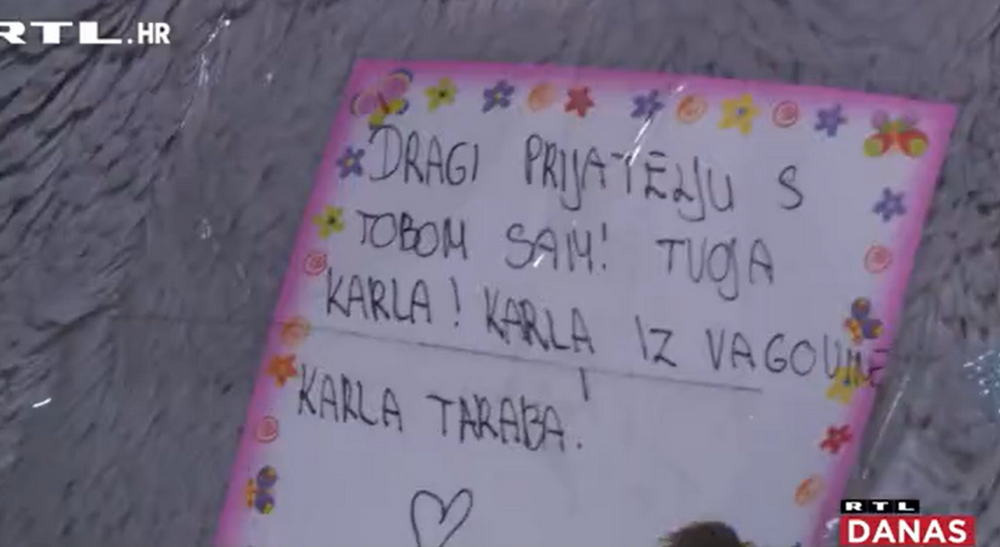 RTL.HR
DRAGI PRIJATELJU S
TOBOM SAM! TVOJA
KARLA! KARLA IZ
KARLA TARABA.
RTL
DANAS